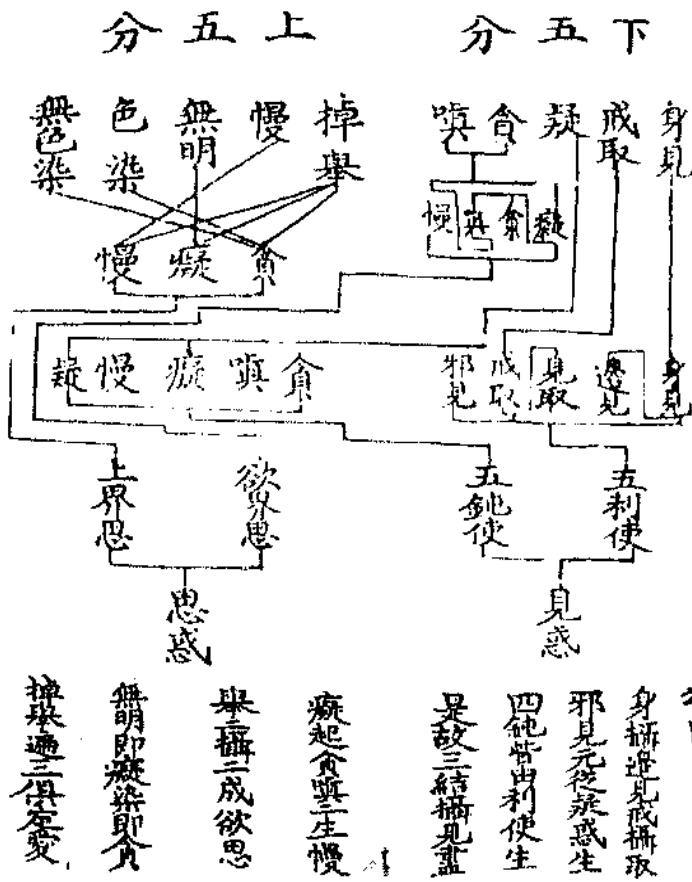 下五分
上五分
身見
戒取
疑
貪
嗔
掉舉
慢
無明
色染
無色染
癡
貪
嗔
慢
貪
癡
慢
身見
邊見
見取
戒取
邪見
貪
嗔
癡
慢
疑
五利使
五鈍使
欲界思
上界思
見惑
思惑
身攝邊見戒攝取
邪見元從疑惑生
四鈍皆由利使生
是故三結攝見盡
癡起貪嗔二生慢
舉二攝二成欲思
無明即癡染即貪
掉舉遍三俱